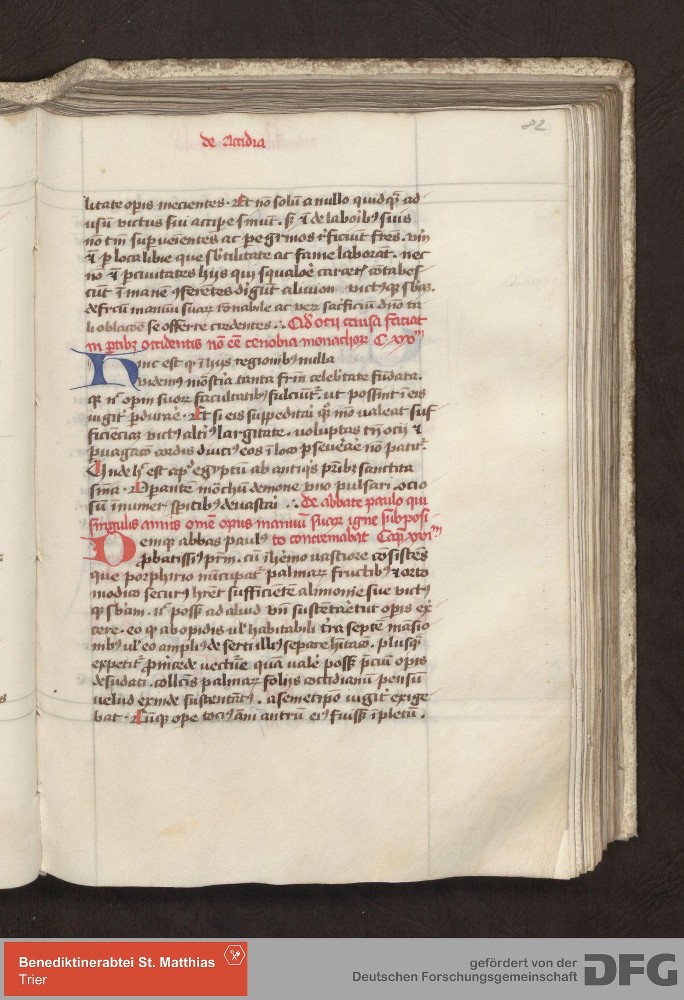 82
de Accidia
litate opis mecientes. Et nō solū a nullo quidqᷓ ad
usū victus sui accipe sinūt. sꝫ ⁊ de laboribꝰ suis
nō tm̄ supveientes ac pegrinos reficiūt frēs. vm̄
⁊ p loca libie que sterilitate ac fame laborāt. nec
nō ⁊ p civitates hijs qui squalore carcerꝫ cōtabes
cūt īmane ꝯferētes dirigūt alimon victꝰqꝫ sbās.
de frcū manuū suaꝝ rōnabile ac verꝫ sacrificiū dn̄o ta
li oblacōe se offerre credentes. Qd' ocii causa faciat
in ptibꝫ occidentis nō eē cenobia monachoꝝ C xvᵐ
Hinc est qꝫ ī hijs regionibꝰ nulla
videmꝰ mōstria tanta frm̄ celebritate fūdata.
qꝫ nͨ opm̄ suoꝝ facultatibꝫ fulciūtᷓ. ut possint ī eis
iugitᷓ pdurare. Et si eis suppeditai qͦ mō valeat suf
ficiēcia victꝰ altiꝰ largitate. voluptas tn̄ ocii ⁊
pvagatō cordis diuciꝰ eos ī loco pseverāe nō patitᷓ.
Unde hͨ est apͩ egyptū ab antiqͥs pribꝫ sanctita
snīa. Opantē mōchū demone vno pulsari. ocio
sū inumeꝝ spiritibꝫ devastari. de abbate paulo qui
singulis annis omē opus manuū suaꝝ igne subposi
Deniqꝫ abbas paulꝰ to concremabat Cap xviᵐ
pbatissiꝰ prm̄. cū ī hemo vastiore cōsistēs
que porphirio nūcupatᷓ palmaꝝ fructibꝰ ⁊ orto
modico securꝰ hret sufficiētē alimonie sue victꝰ
qꝫ sbām. nͨ possꝫ ad aliud vn̄ sustētaretur opis ex
cere. eo qꝫ ab opidis ulͥ habitabili tra septē māsio
nibꝰ ulͥ eo ampliꝰ deserti illiꝰ separetᷓ hitacō. plusqꝫ
expetitᷓ p mcede vecture quā vale possꝫ pciū opis
desudati. collcis palmaꝝ folijs cottidianū pensū
velud exinde sustentādꝰ. a semetipo iugitᷓ exige
bat. Cūqꝫ ope tociꝰ āni antrū eiꝰ fuissꝫ īpletū.
Benediktinerabtei St. Matthias
Trier
gefördert von der
Deutschen Forschungsgemeinschaft DFG